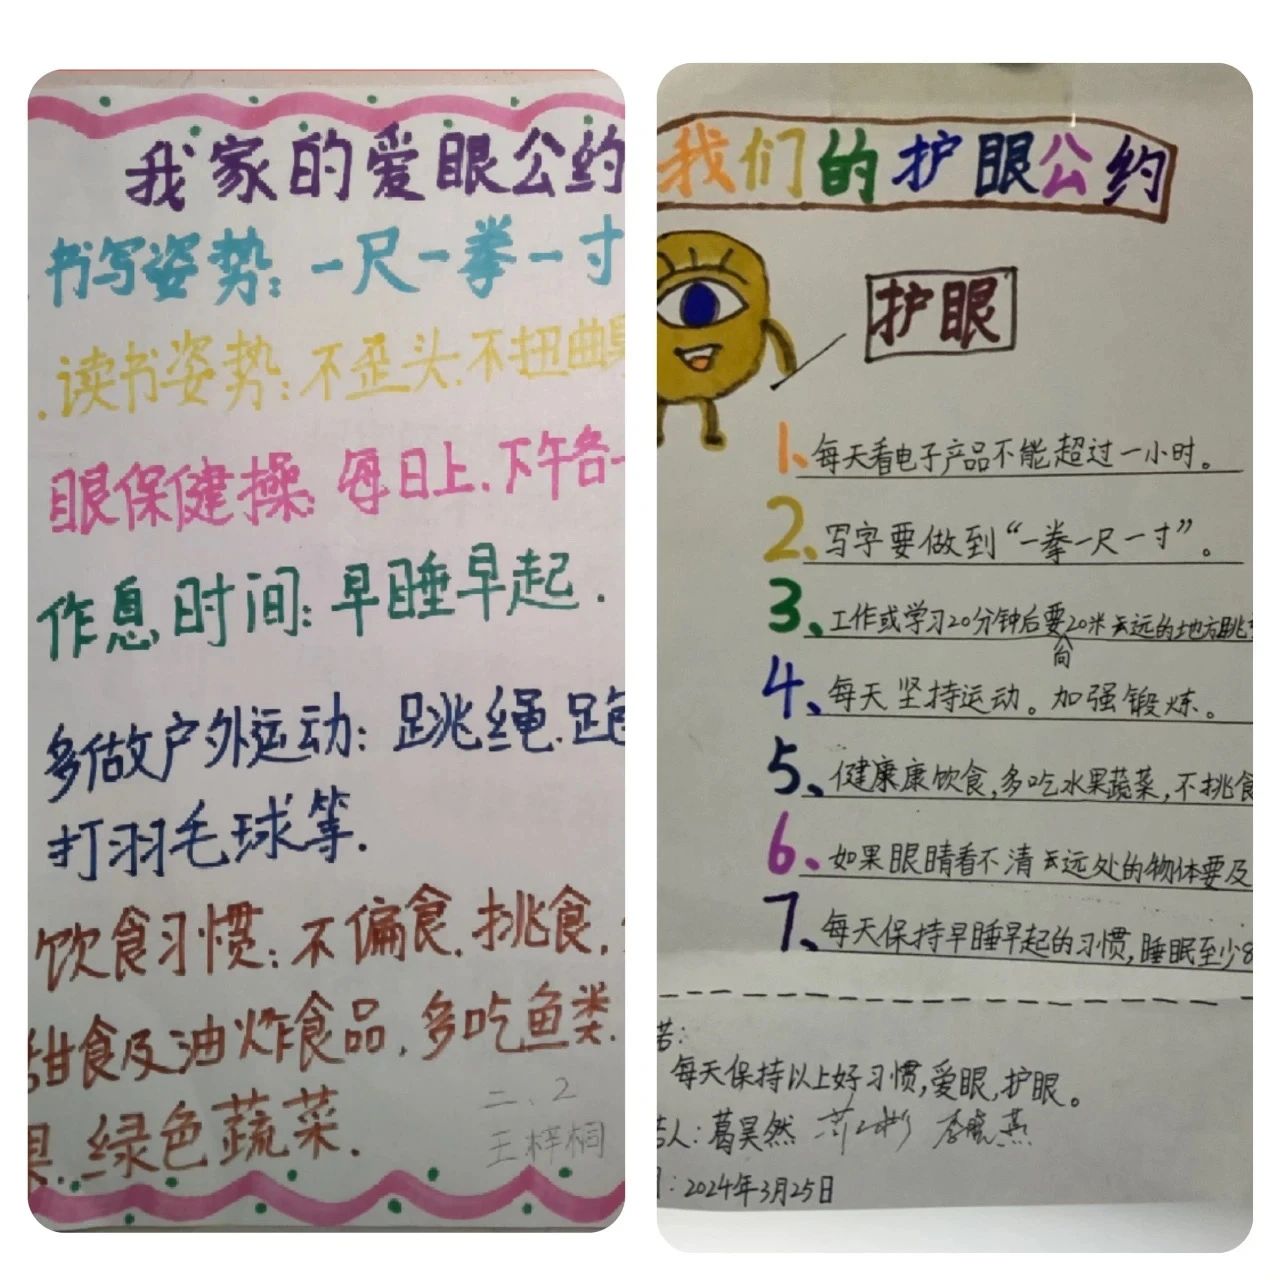 我家的爱眼公约
书写姿势:一尺一拳一寸
读书姿势:不歪头.不扭曲
眼保健操:每日上、下午各一
作息时间:早睡早起.
多做户外运动:跳绳.
打羽毛球等.
饮食习惯:不偏食.挑食.
甜食及油炸食品.多吃鱼类.
果.绿色蔬菜.
二、2
王梓桐
我们的护眼公约
护眼
1、每天看电子产品不能超过一小时。
2、写字要做到“一拳一尺一寸”。
3、工作或学习20分钟后要向20米云远的地方眺
4、每天坚持运动。加强锻炼。
5、健康康饮食,多吃水果蔬菜,不挑食
6、如果眼睛看不清云远处的物体要及
7、每天保持早睡早起的习惯,睡眠至少8
诺:
每天保持以上好习惯,爱眼,护眼。
人:葛昊然 李晓燕
:2024年3月25日